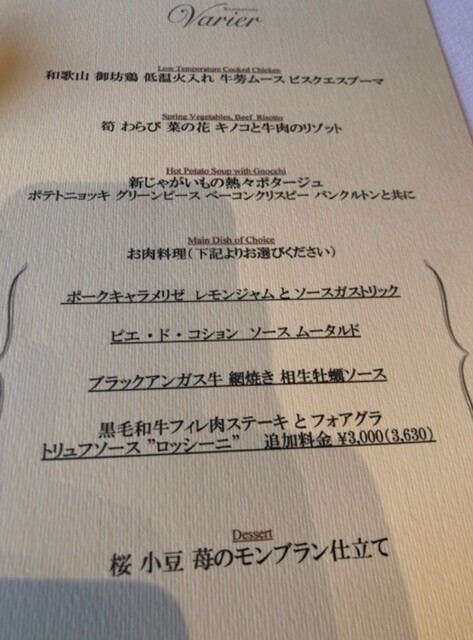 Varier
Low Temperature Cooked Chicken
和歌山 御坊鶏 低温火入れ 牛蒡ムース ビスクエスプーマ
Spring Vegetables, Beef Risotto
筍 わらび 菜の花 キノコと牛肉のリゾット
Hot Potato Soup with Gnocchi
新じゃがいもの熱々ポタージュ
ポテトニョッキ グリーンピース ベーコンクリスピー パンクルトンと共に
Main Dish of Choice
お肉料理(下記よりお選びください)
ポークキャラメリゼ レモンジャム と ソースガストリック
ピエ・ド・コション ソース ムータルド
ブラックアンガス牛 網焼き 相生牡蠣ソース
黒毛和牛フィレ肉ステーキ と フォアグラ
トリュフソース "ロッシーニ" 追加料金 ¥3,000(3,630)
Dessert
桜 小豆 苺のモンブラン仕立て